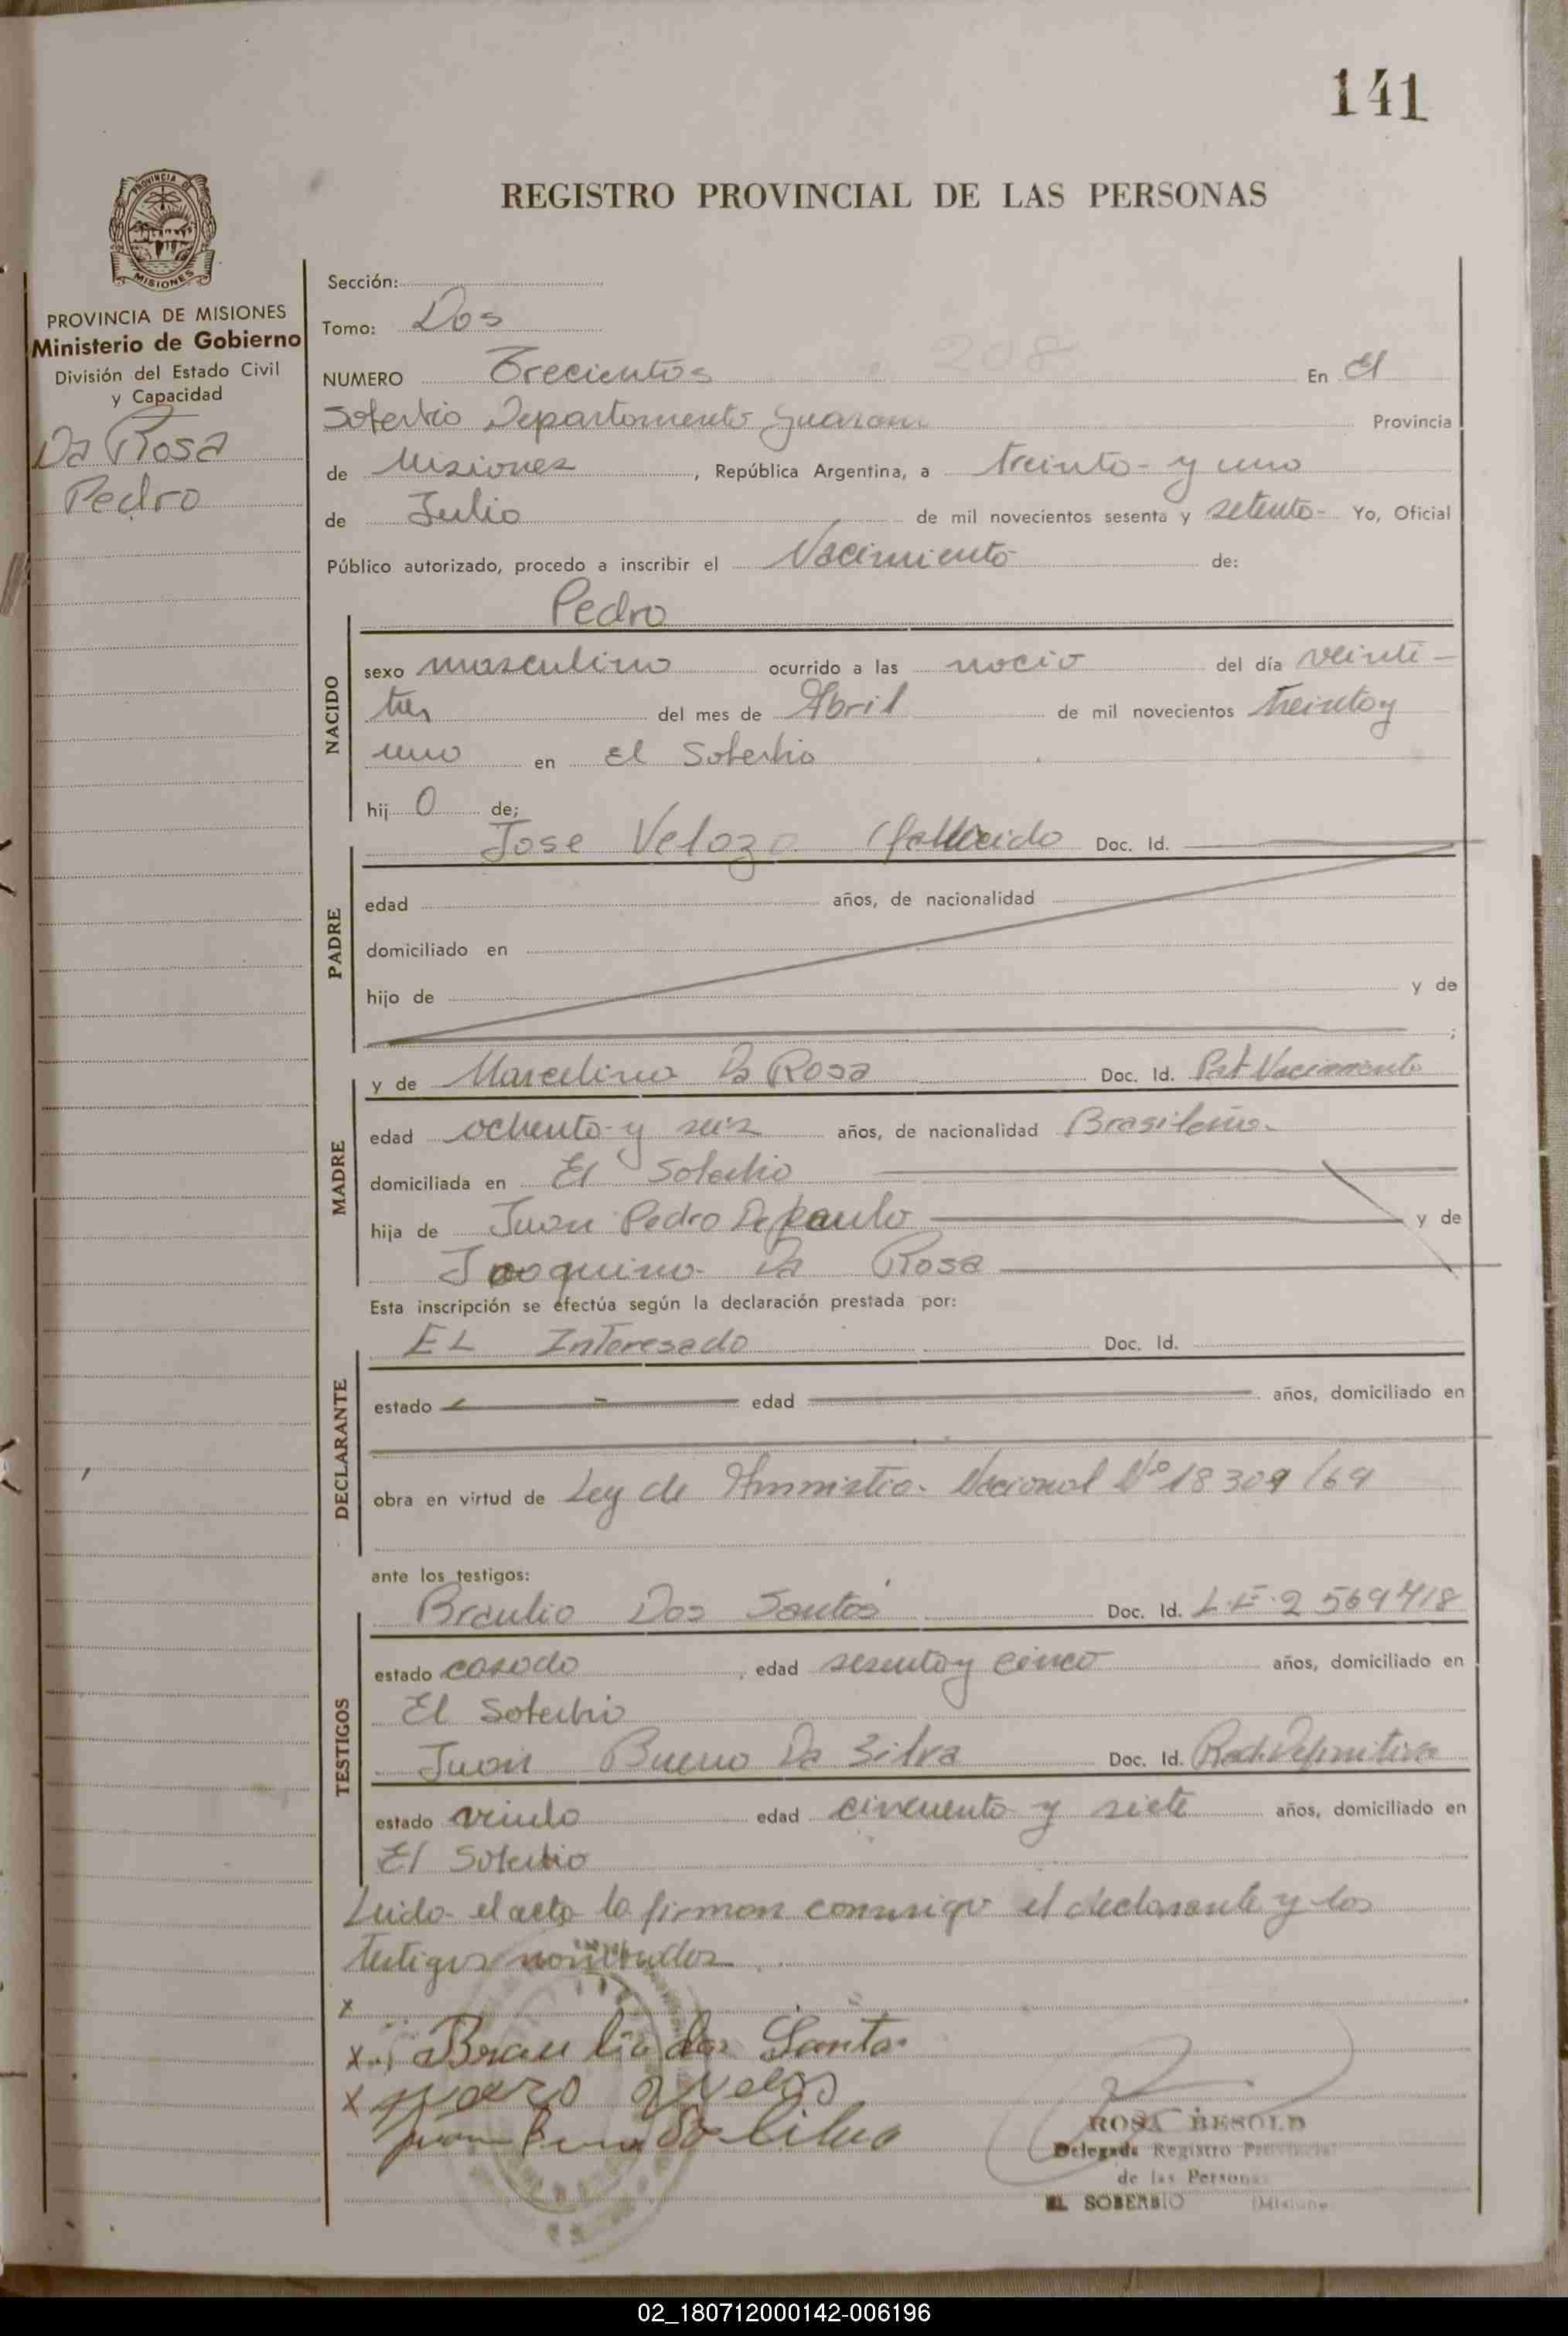 141
REGISTRO PROVINCIAL DE LAS PERSONAS
PROVINCIA DE MISIONES
PROVINCIA DE MISIONES
Ministerio de Gobierno
División del Estado Civil
y Capacidad
Da Rosa
Pedro
Sección:
Tomo: Dos
NUMERO Trecientos 208 En El
Soberbio Departamento Guarani Provincia
de Misiones, República Argentina, a treinta y uno
de Julio de mil novecientos sesenta y setenta- Yo, Oficial
Público autorizado, procedo a inscribir el Nacimiento de:
Pedro
NACIDO
sexo masculino ocurrido a las nacio del día veinti-
tres del mes de Abril de mil novecientos treinta y
uno en El Soberbio
hij o de;
PADRE
Jose Velozo (fallecido Doc. Id.
edad años, de nacionalidad
domiciliado en
hijo de y de
;
MADRE
y de Marcelina Da Rosa Doc. Id. Nacimiento
edad ochenta y seis años, de nacionalidad Brasileña.
domiciliada en El Soberbio
hija de Juan Pedro De Paula y de
Joaquina Da Rosa
Esta inscripción se efectúa según la declaración prestada por:
DECLARANTE
EL Interesado Doc. Id.
estado edad años, domiciliado en
obra en virtud de Ley de Amnistia. Nacional Nº 18309/69
ante los testigos:
TESTIGOS
Braulio Dos Santos Doc. Id. L.E. 2569418
estado casado, edad sesenta y cinco años, domiciliado en
El Soberbio
Juan Bueno Da Silva Doc. Id. Rad. Definitiva
estado viudo edad cincuenta y siete años, domiciliado en
El Soberbio
Leida el acta la firman conmigo el declarante y los
testigos nombrados
x
x Braulio dos Santos
x
Silva
ROSA BESOLD
Delegada Registro Provincial
de las Personas
EL SOBERBIO Misiones
02_180712000142-006196